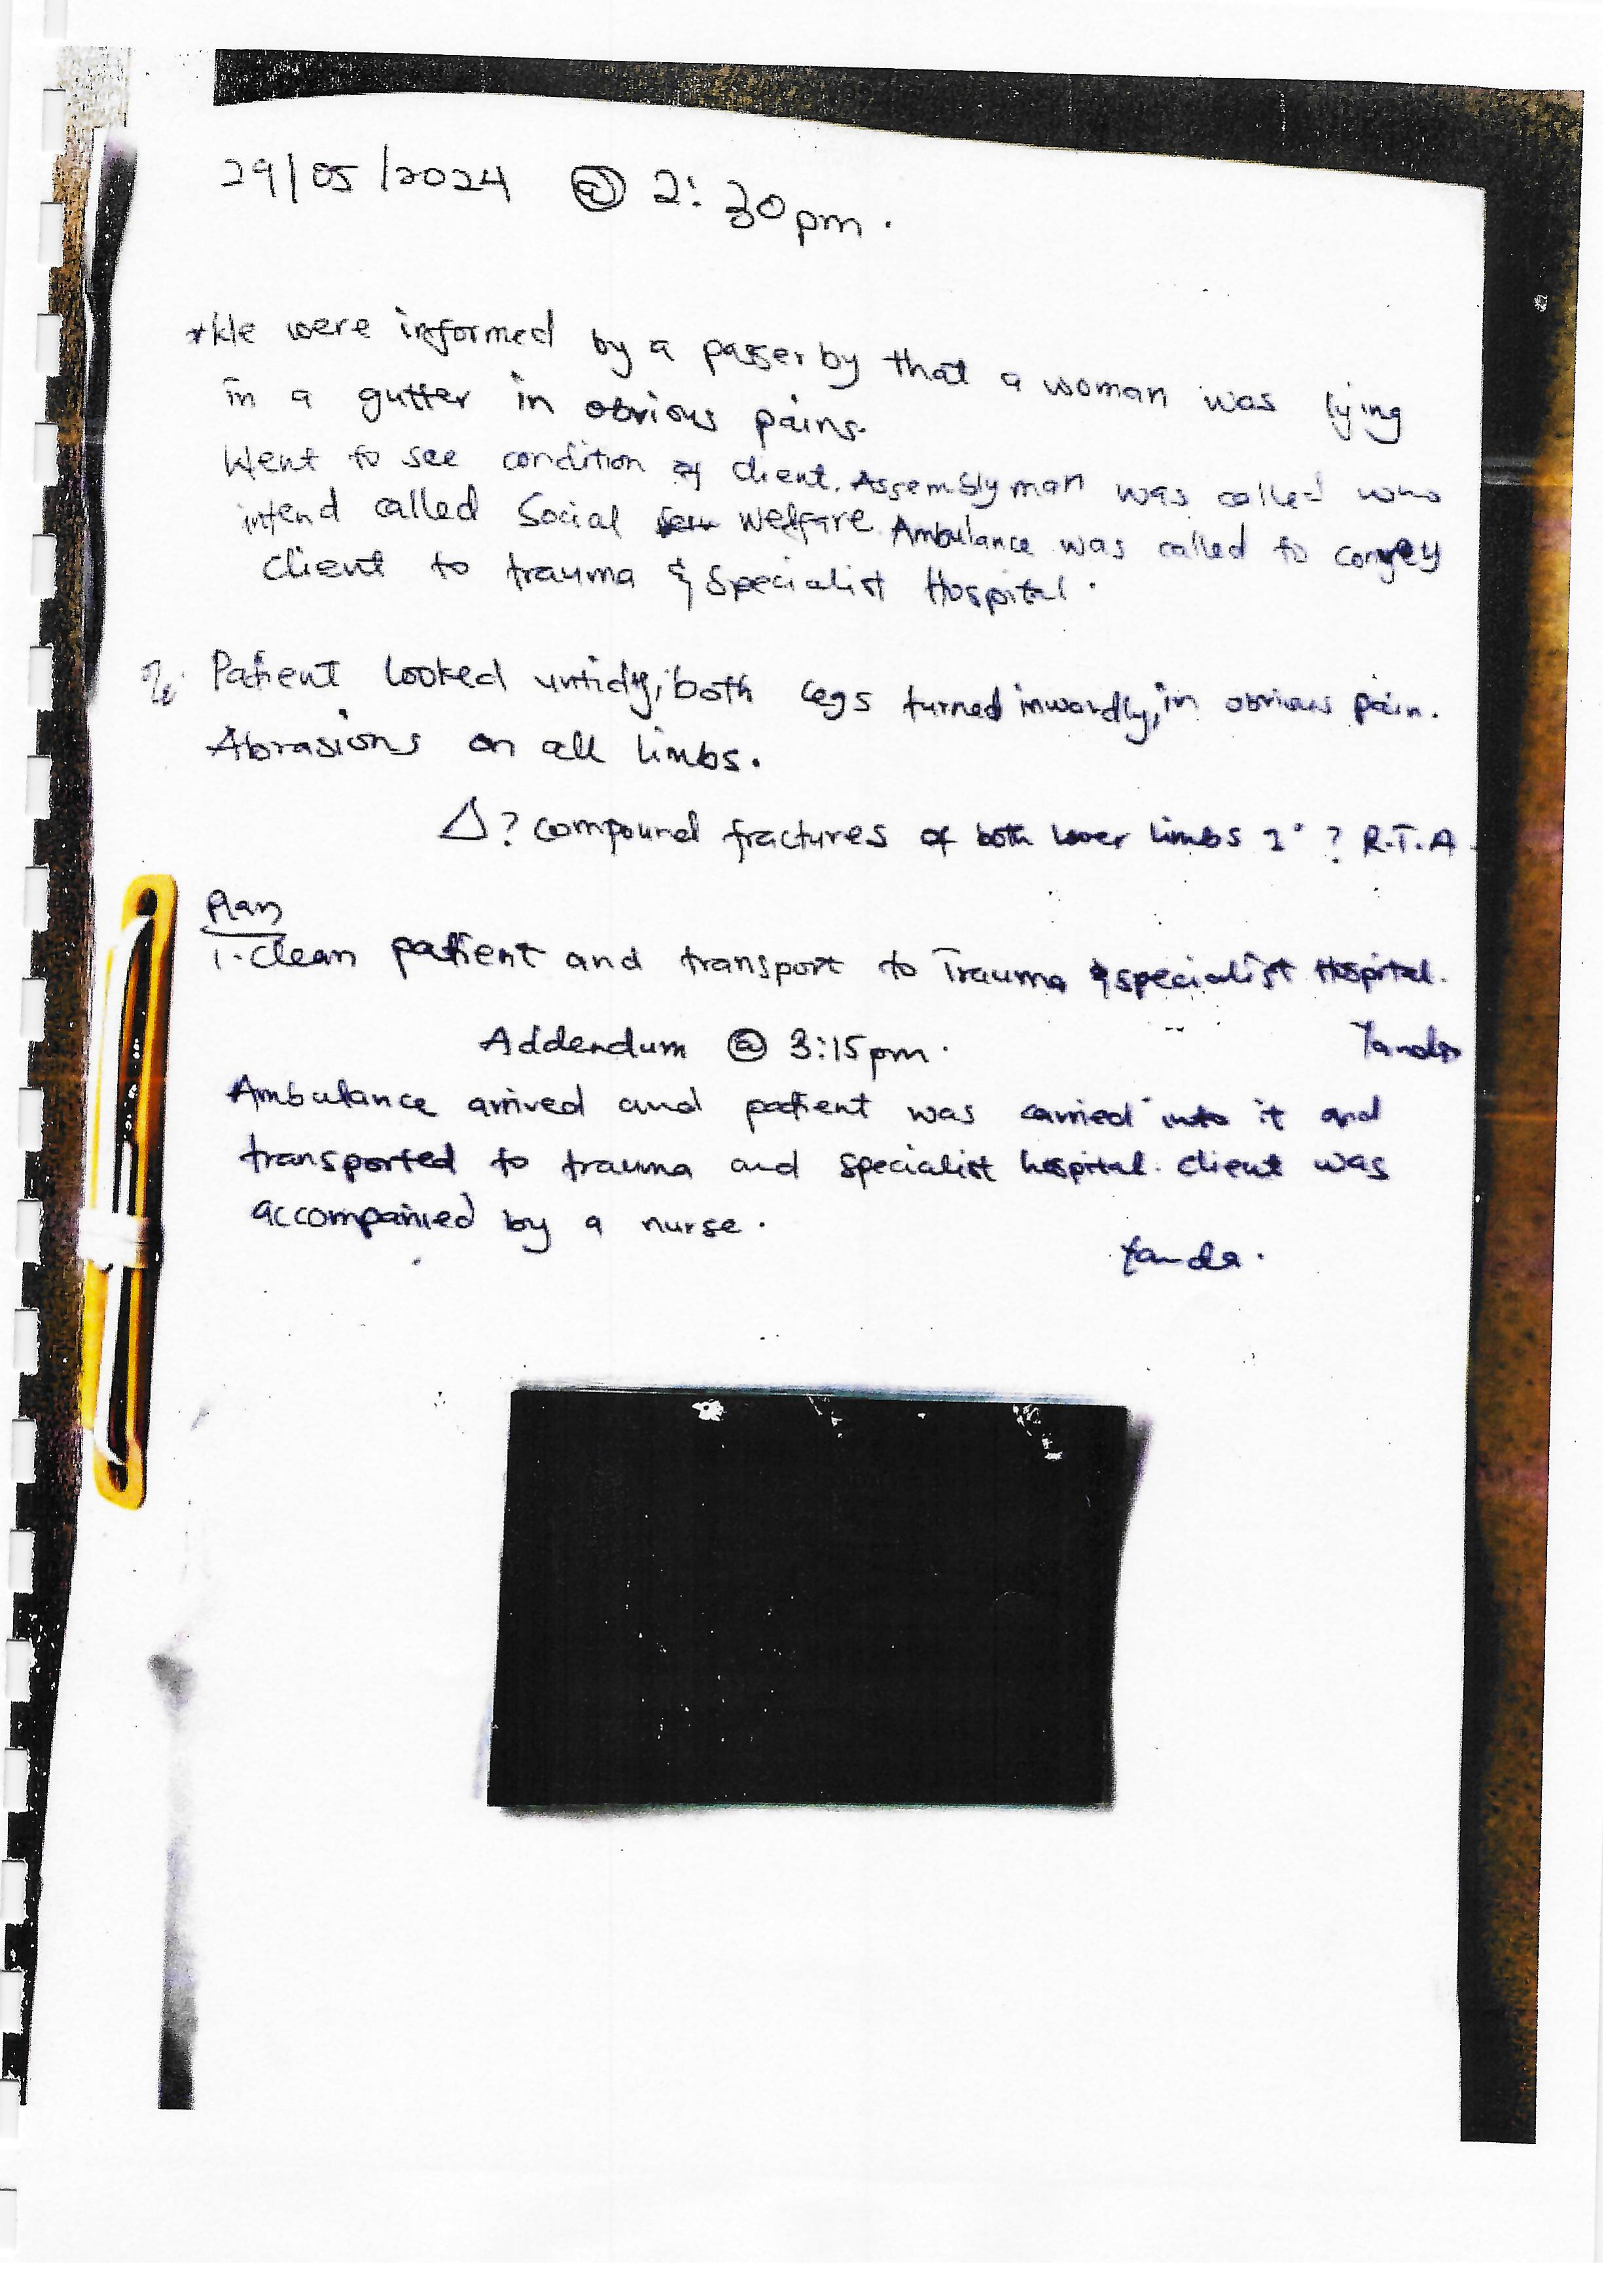 29/05/2024 @ 2:30pm.
*We were informed by a passer by that a woman was lying
in a gutter in obvious pains.
Went to see condition of client. Assembly man was called who
intend called Social welfare. Ambulance was called to convey
client to trauma & Specialist Hospital.
O/E Patient looked untidy, both legs turned inwardly, in obvious pain.
Abrasions on all limbs.
Δ ? compound fractures of both lower limbs 2° ? R.T.A.
Plan
1. Clean patient and transport to Trauma & specialist Hospital.
Addendum @ 3:15pm.
Ambulance arrived and patient was carried into it and
transported to trauma and specialist hospital. client was
accompanied by a nurse.